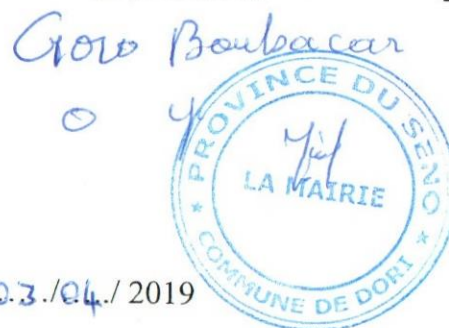 Goro Boubacar
PROVINCE DU SENO
LA MAIRIE
* COMMUNE DE DORI *
03./04./ 2019